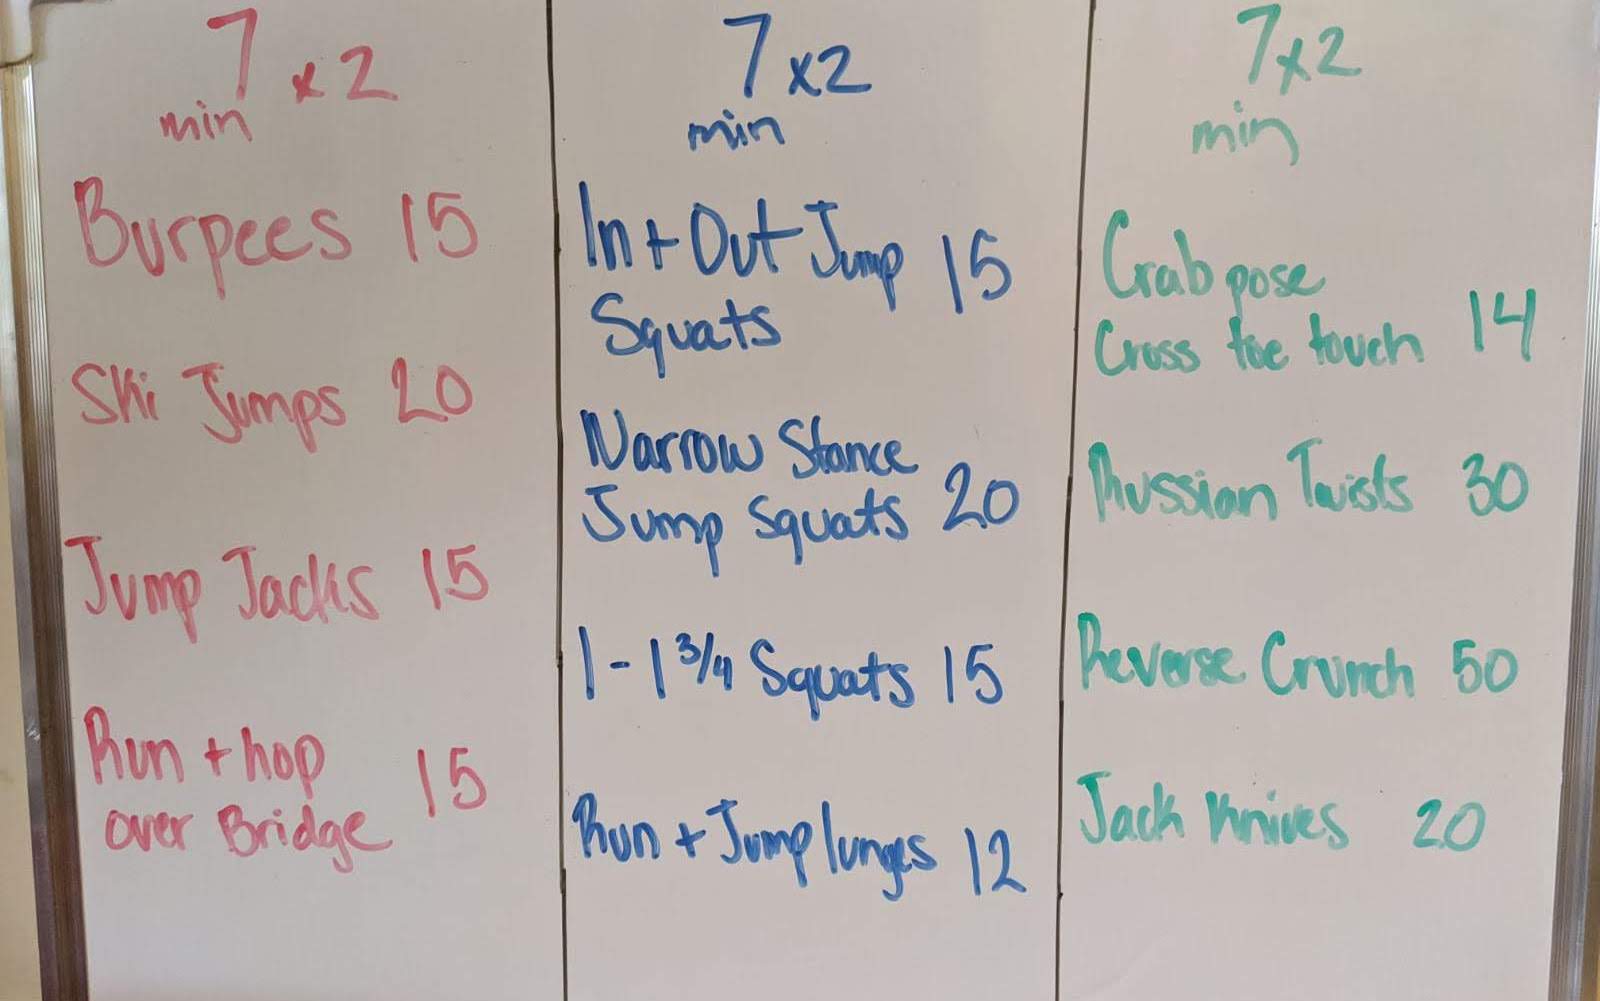 7 x 2
min
Burpees 15
Ski Jumps 20
Jump Jacks 15
Run + hop
over Bridge 15
7 x2
min
In + Out Jump 15
Squats
Narrow Stance
Jump Squats 20
1 - 1 3/4 Squats 15
Run + Jump lunges 12
7x2
min
Crab pose
Cross toe touch 14
Russian Twists 30
Reverse Crunch 50
Jack Knives 20